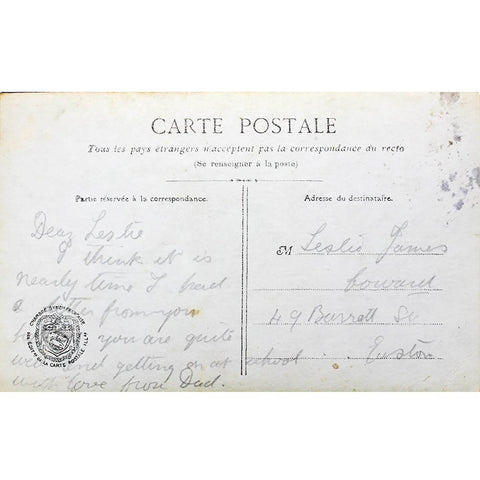 CARTE POSTALE
Tous les pays étrangers n'acceptent pas la correspondance au recto
(Se renseigner à la poste)
Partie réservée à la correspondance.
Adresse du destinataire.
Dear Leslie
I think it is
nearly time I had
a letter from you
you are quite
well and getting on at school
with love from Dad.
M
Leslie James
Coward
49 Barrett St
Euston
CHAMBRE SYNDICALE
DE LA CARTE POSTALE ILL